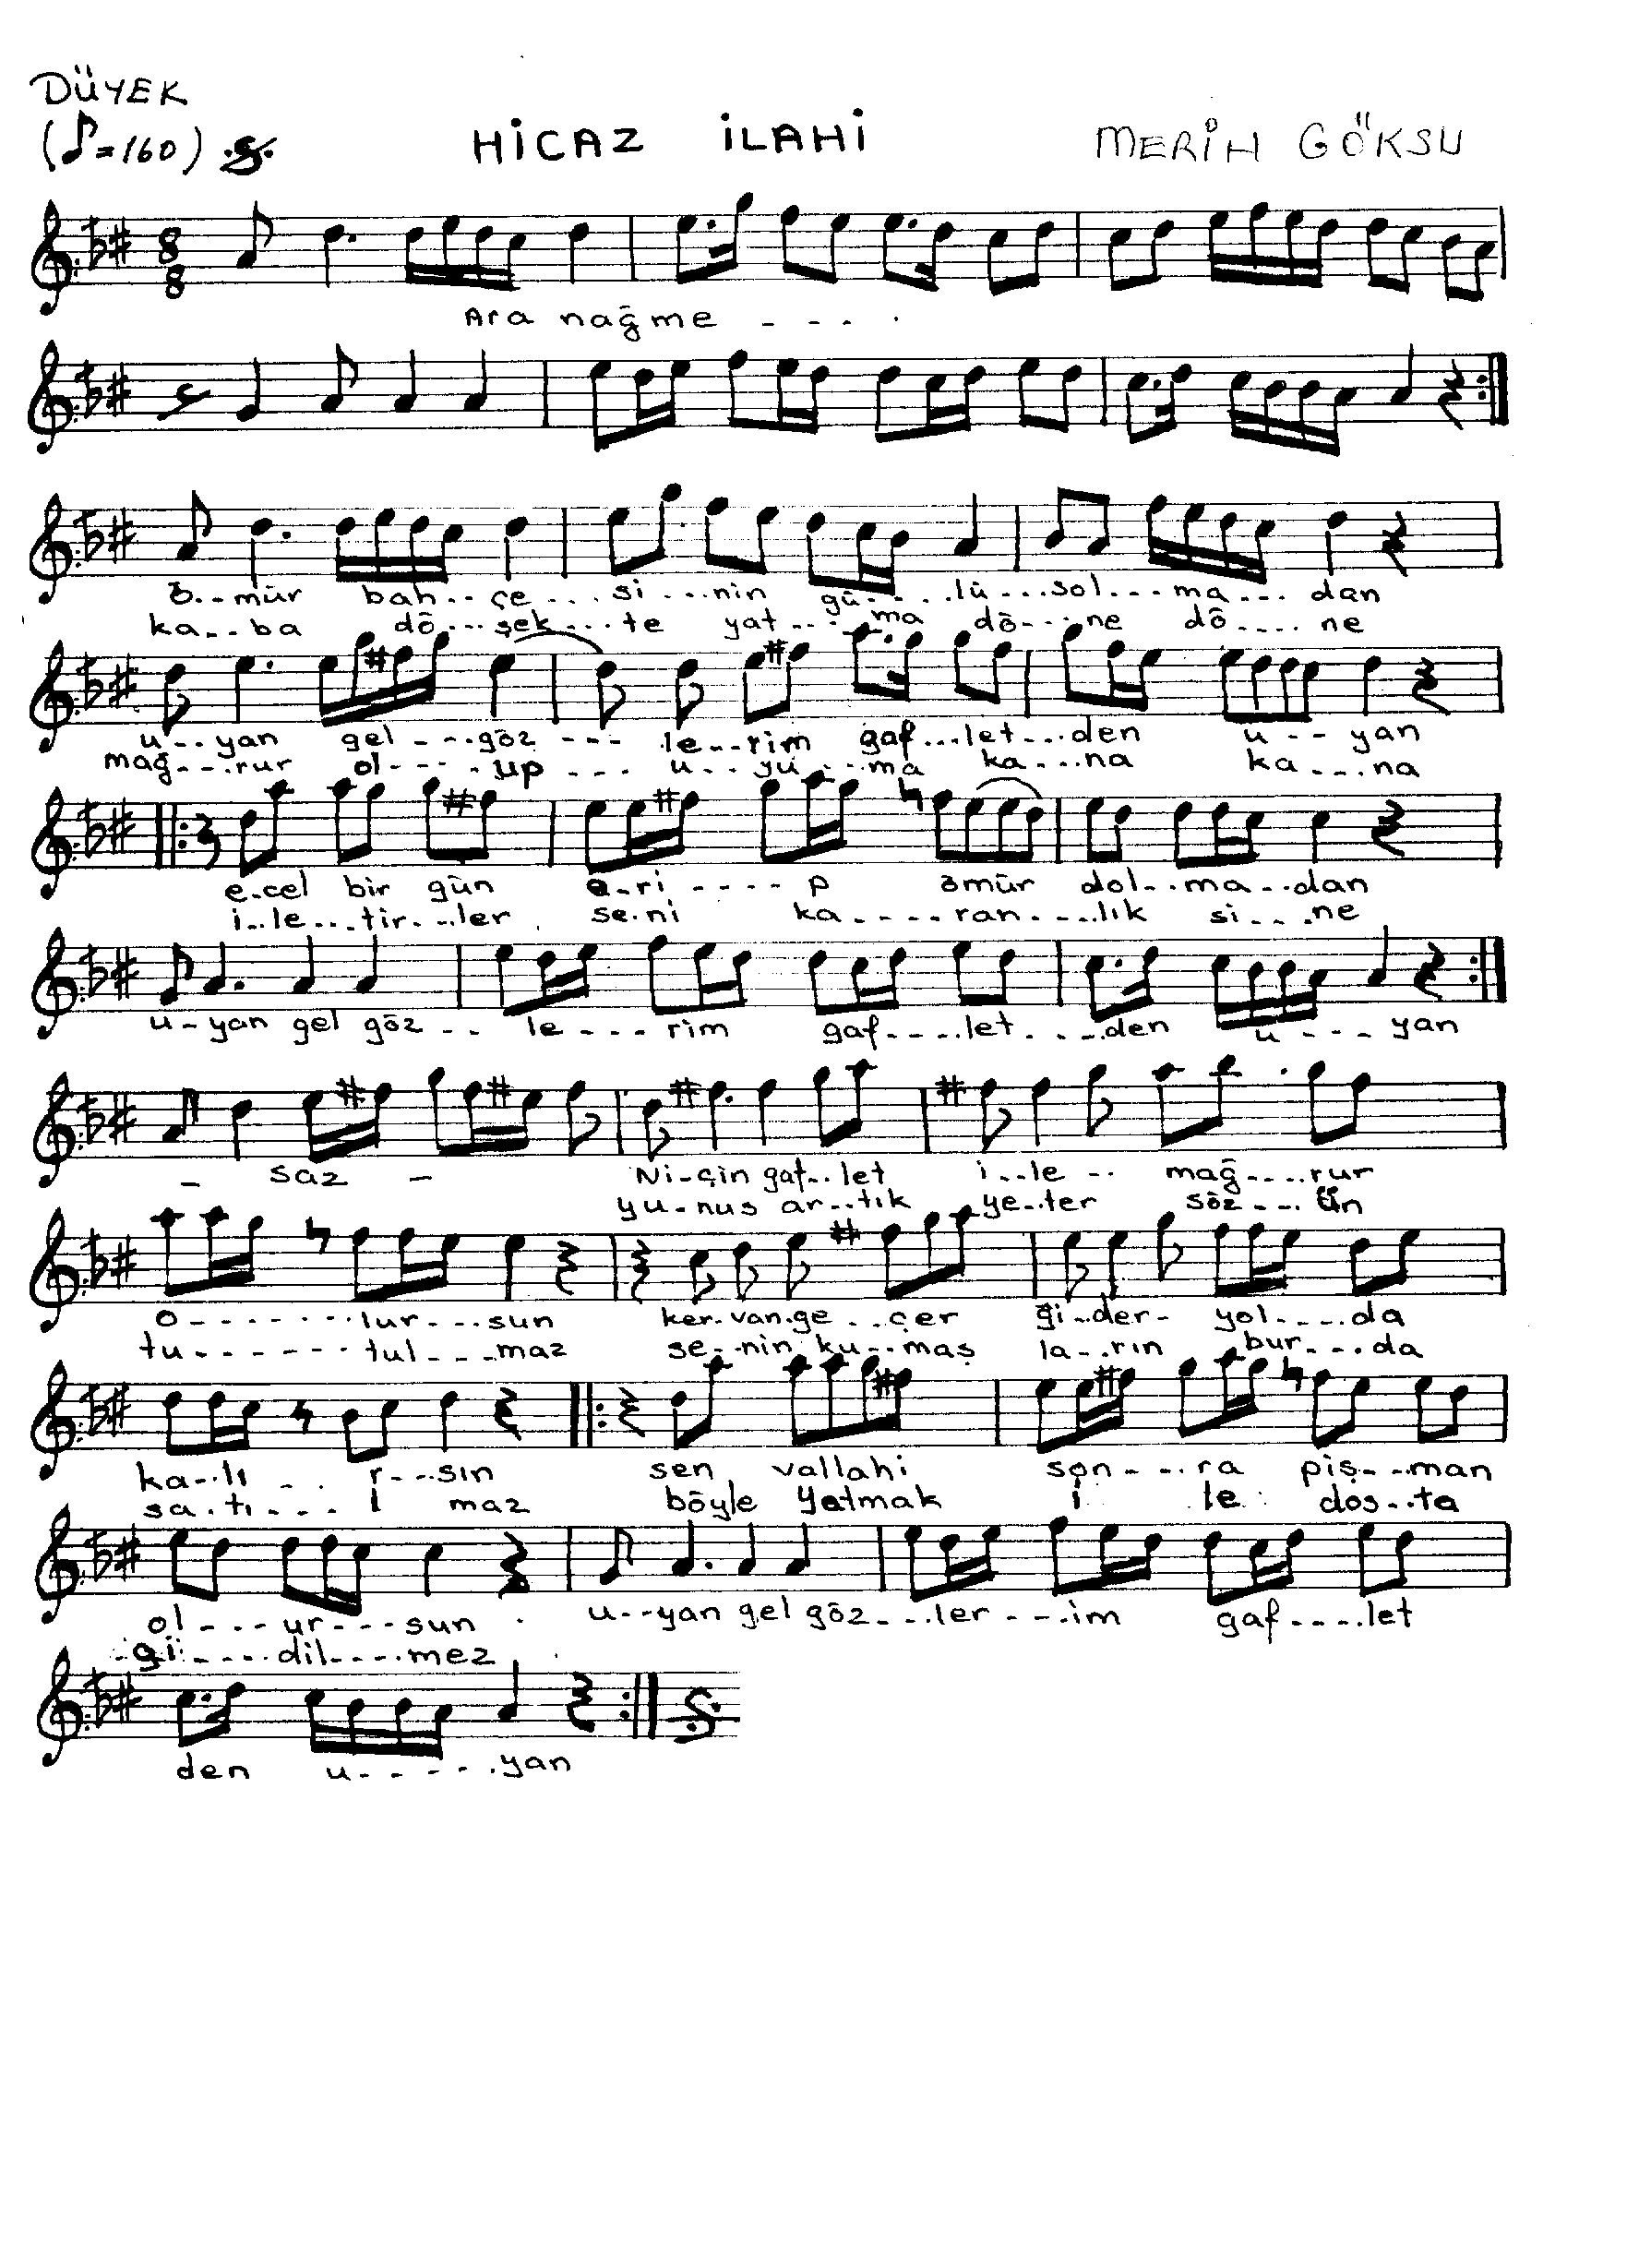 DÜYEK
(♪=160) HİCAZ İLAHİ MERİH GÖKSU
8 8
Ara nağme - - - .
ö.--mür bah---çe....si...nin gü-....lü---sol...-ma-...dan
ka--ba dö---şek---te yat-...ma dö-...ne dö-....ne
u---yan gel---.göz---- le...rim gaf...let...den u---yan
mağ---.rur ol----.up---. u---yu---ma ka---.na ka---.na
e-cel bir gün e-ri----p ömür dol..ma-..dan
i..le...tir...ler se.ni ka----ran-...lık si---.ne
u-yan gel göz-- le---.rim gaf----.let----.den u----yan
- saz - Ni-çin gaf-..let i...le -.. mağ-...rur
yu-nus ar-..tık ye-..ter söz---.ün
o-------.lur...sun ker-van.ge...çer gi..der- yol-...da
tu-------.tul---.maz se-.nin ku-.maş la-..rın bur---.da
ka-..lı -.. r---.sın sen vallahi son---.ra piş-..man
sa.tı---. l maz böyle yatmak i le dos-..ta
ol----ur---.sun . u--yan gel göz---.ler---.im gaf----.let
gi-----.dil----.mez
den u-----.yan